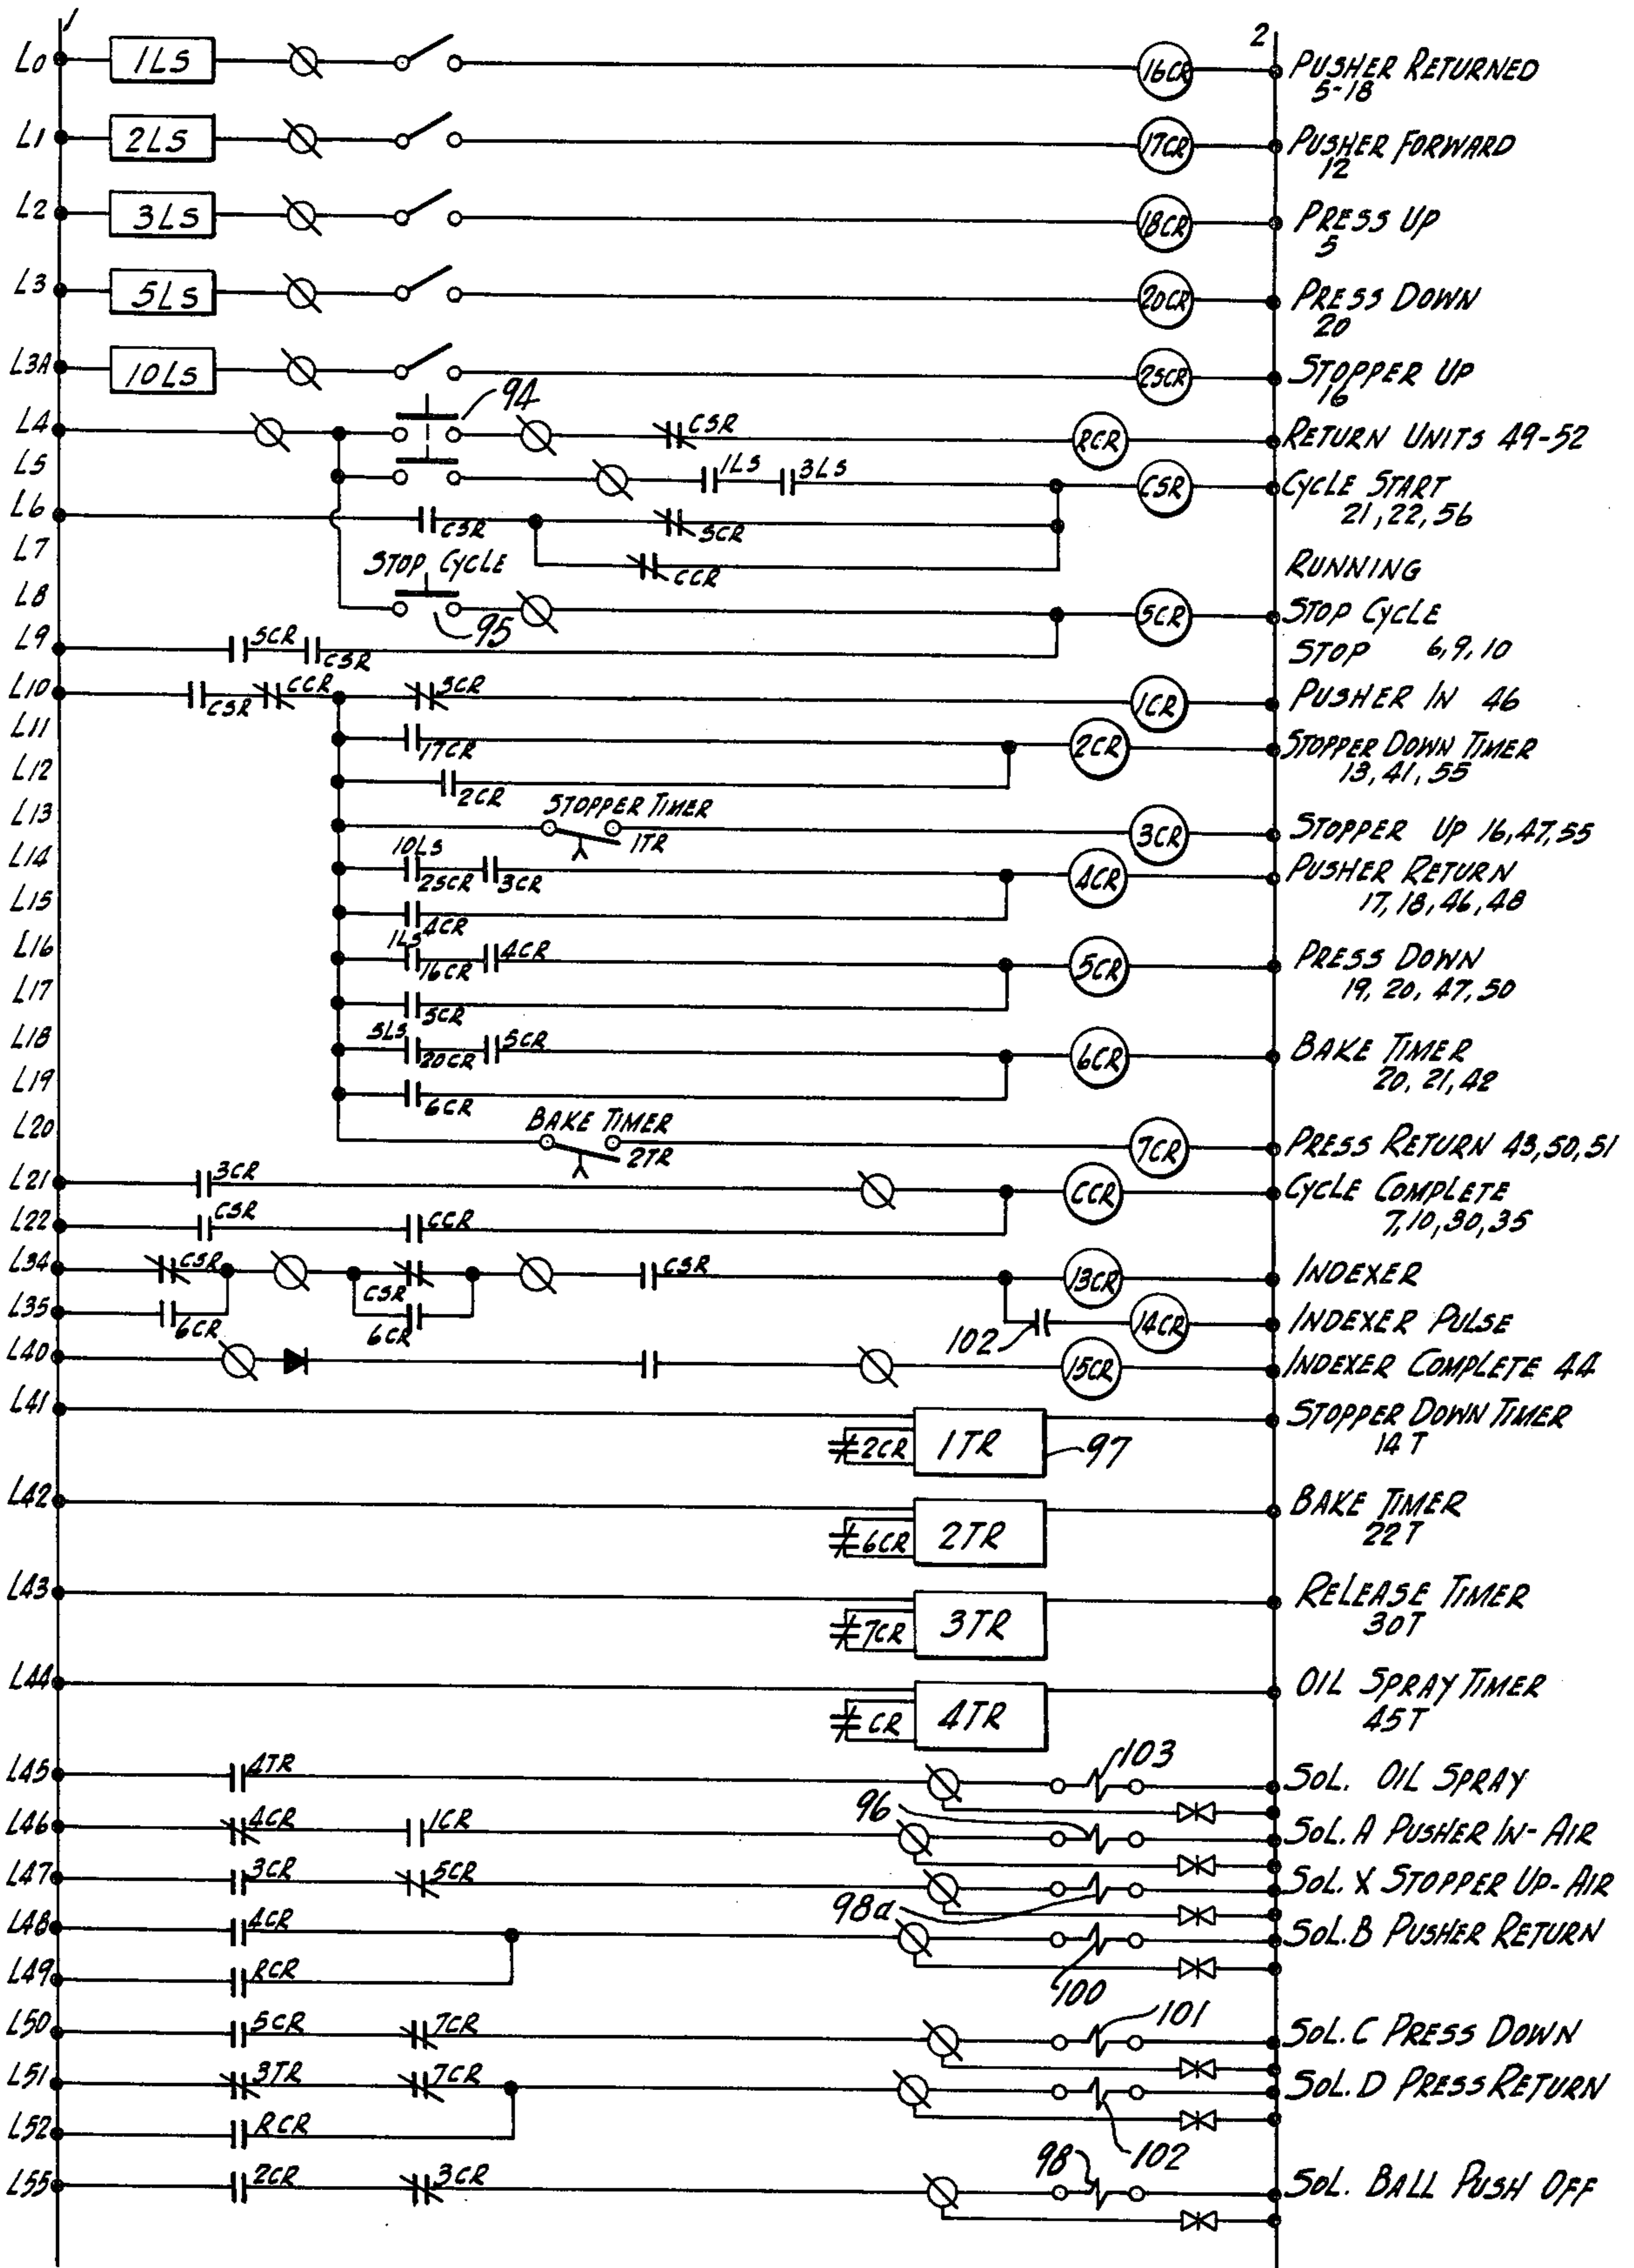 1
2
L0 1LS 16CR PUSHER RETURNED
5-18
L1 2LS 17CR PUSHER FORWARD
12
L2 3LS 18CR PRESS UP
5
L3 5LS 20CR PRESS DOWN
20
L3A 10LS 25CR STOPPER UP
16
94
L4 CSR RCR RETURN UNITS 49-52
L5 1LS 3LS CSR CYCLE START
21, 22, 56
L6 CSR SCR
L7 CCR RUNNING
STOP CYCLE
L8 95 SCR STOP CYCLE
L9 SCR CSR STOP 6, 9, 10
L10 CSR CCR SCR 1CR PUSHER IN 46
L11 17CR 2CR STOPPER DOWN TIMER
13, 41, 55
L12 2CR
STOPPER TIMER
L13 1TR 3CR STOPPER UP 16, 47, 55
L14 10LS 25CR 3CR 4CR PUSHER RETURN
17, 18, 46, 48
L15 4CR
L16 1LS 16CR 4CR 5CR PRESS DOWN
19, 20, 47, 50
L17 5CR
L18 5LS 20CR 5CR 6CR BAKE TIMER
20, 21, 42
L19 6CR
BAKE TIMER
L20 2TR 7CR PRESS RETURN 43, 50, 51
L21 3CR CCR CYCLE COMPLETE
7, 10, 30, 35
L22 CSR CCR
L34 CSR CSR CSR 13CR INDEXER
L35 6CR 6CR 102 14CR INDEXER PULSE
L40 15CR INDEXER COMPLETE 44
L41 2CR 1TR 97 STOPPER DOWN TIMER
14T
L42 6CR 2TR BAKE TIMER
22T
L43 7CR 3TR RELEASE TIMER
30T
L44 CR 4TR OIL SPRAY TIMER
45T
L45 4TR 103 SOL. OIL SPRAY
L46 4CR 1CR 96 SOL. A PUSHER IN-AIR
L47 3CR 5CR 98a SOL. X STOPPER UP-AIR
L48 4CR 100 SOL. B PUSHER RETURN
L49 RCR
L50 5CR 7CR 101 SOL. C PRESS DOWN
L51 3TR 7CR 102 SOL. D PRESS RETURN
L52 RCR
L55 2CR 3CR 98 SOL. BALL PUSH OFF